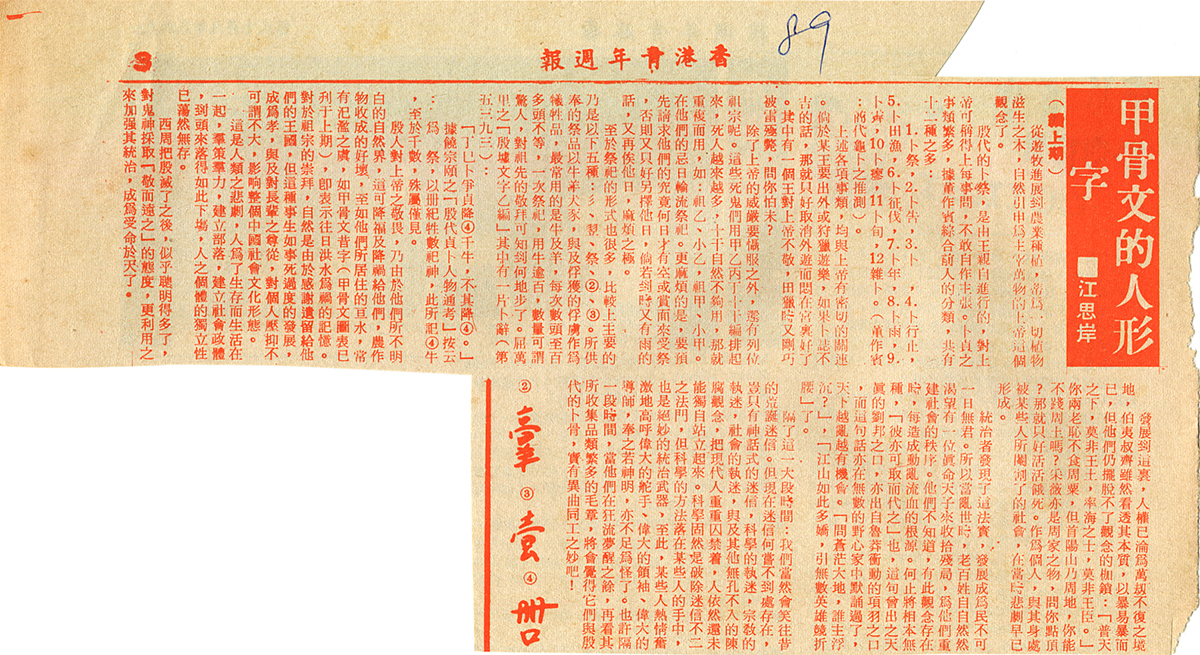 89
香港青年週報
3
甲骨文的人形
字
江思岸
（續上期）
從遊牧進展到農業種植，帝爲一切植物
滋生之本，自然引申爲主宰萬物的上帝這個
觀念了。
殷代的卜祭，是由王親自進行的，對上
帝可稱得上每事問，不敢自作主張。卜貞之
事類繁多，據董作賓綜合前人的分類，共有
十二種之多：
1.卜祭，2.卜告，3.卜，4.卜行止，
5.卜田漁，6.卜征伐，7.卜年，8.卜雨，9.
卜霽，10.卜瘳，11.卜旬，12.雜卜。（董作賓
「商代龜卜之推測」。
上述各項事類，均與上帝有密切的關連
。倘於某王要出外或狩獵遊樂，如果卜誌不
吉的話，那就只好取消外遊而悶在宮裏好了
。其中有一個王對上帝不敬，田獵時又剛巧
被雷殛斃，問你怕未？
除了上帝的威嚴要懾服之外，還有列位
祖宗呢。這些死鬼們用甲乙丙丁十十編排起
來，死人越來越多，十干自然不夠用，那就
重複而用，如：祖乙、小乙，祖甲、小甲。
在他們的忌日輪流祭祀。更麻煩的是，要預
先請求他們的究竟何日才有空或賞面來受祭
，否則又只好另擇他日，倘若到時又有雨的
話，又再俟他日，麻煩之極。
至於祭祀的形式也很多，比較上主要的
乃是以下五種：彡、翌、祭、②、③。所供
奉的祭品以牛羊犬豕，與及俘獲的俘虜作爲
犧牲品，最常用的是牛及羊，每次數頭至百
多頭不等，一次祭祀，用牛逾百，數量可謂
驚人，對祖先的敬拜可知到何地步了。屈萬
里之「殷墟文字乙編」其中有一片卜辭（第
五三九三）：
「丁巳卜爭貞降④千牛，不其降④。」
據饒宗頤之「殷代貞卜人物通考」按云
：爲祭，以册祀牲數祀神，此所記④牛
，至於千數，殊屬僅見。
殷人對上帝之敬畏，乃由於他們所不明
白的自然界，這可降福及降禍給他們，農作
物收成的好壞，至如他們所居住的亘水，常
有氾濫之虞，如甲骨文昔字（甲骨文圖表已
刋于上期），卽表示往日洪水爲禍的記憶。
對於祖宗的崇拜，自然是由於感謝遺留給他
們的王國，但這種事生如事死過度的發展，
成爲孝，與及對長輩之尊從，對個人壓抑不
可謂不大，影响整個中國社會文化形態。
這是人類之悲劇，人爲了生存而生活在
一起，羣策羣力，建立部落，建立社會政體
，到頭來落得如此下塲，人之個體的獨立性
已蕩然無存。
西周把殷滅了之後，似乎聰明得多了，
對鬼神採取「敬而遠之」的態度，更利用之
來加强其統治，成爲受命於天了。
發展到這裏，人權已淪爲萬刼不復之境
地，伯夷叔齊雖然看透其本質，以暴易暴而
已，但他們仍擺脫不了觀念的枷鎖：「普天
之下，莫非王土，率海之士，莫非王臣。」
你兩老恥不食周粟，但首陽山乃周地，你能
不踐周土嗎？采薇亦是周家之物，問你點頂
？那就只好活活餓死。作爲個人，與其身處
被某些人所閹割了的社會，在當時悲劇早已
形成。
統治者發現了這法寶，發展成爲民不可
一日無君。所以當亂世時，老百姓自自然然
渴望有一位眞命天子來收拾殘局，爲他們重
建社會的秩序。他們不知道，有此觀念存在
時，每造成動亂流血的根源。何止將相本無
種，「彼亦可取而代之」也，這句曾出之天
眞的劉邦之口，亦出自魯莽衝動的項羽之口
，而這句話亦在無數的野心家中默誦過了，
天下越亂越有機會。「問蒼茫大地，誰主浮
沉？」，「江山如此多嬌，引無數英雄饒折
腰」了。
隔了這一大段時間，我們當然會笑往昔
的荒誕迷信。但現在迷信何嘗不到處存在，
豈只有神話式的迷信，科學的執迷，宗敎的
執迷，社會的執迷，與及其他無孔不入的陳
腐觀念，把現代人重重囚禁着，人依然還未
能獨自站立起來。科學固然是破除迷信不二
之法門，但科學的方法落在某些人的手中，
也是絕妙的統治武器，至此，某些人熱情奮
激地高呼偉大的舵手、偉大的領袖、偉大的
導師，奉之若神明，亦不足爲怪了。也許隔
一段時間，當他們在狂流夢醒之餘，再看其
所收集品類繁多的毛章，將會覺得它們與殷
代的卜骨，實有異曲同工之妙吧！
②
③
④